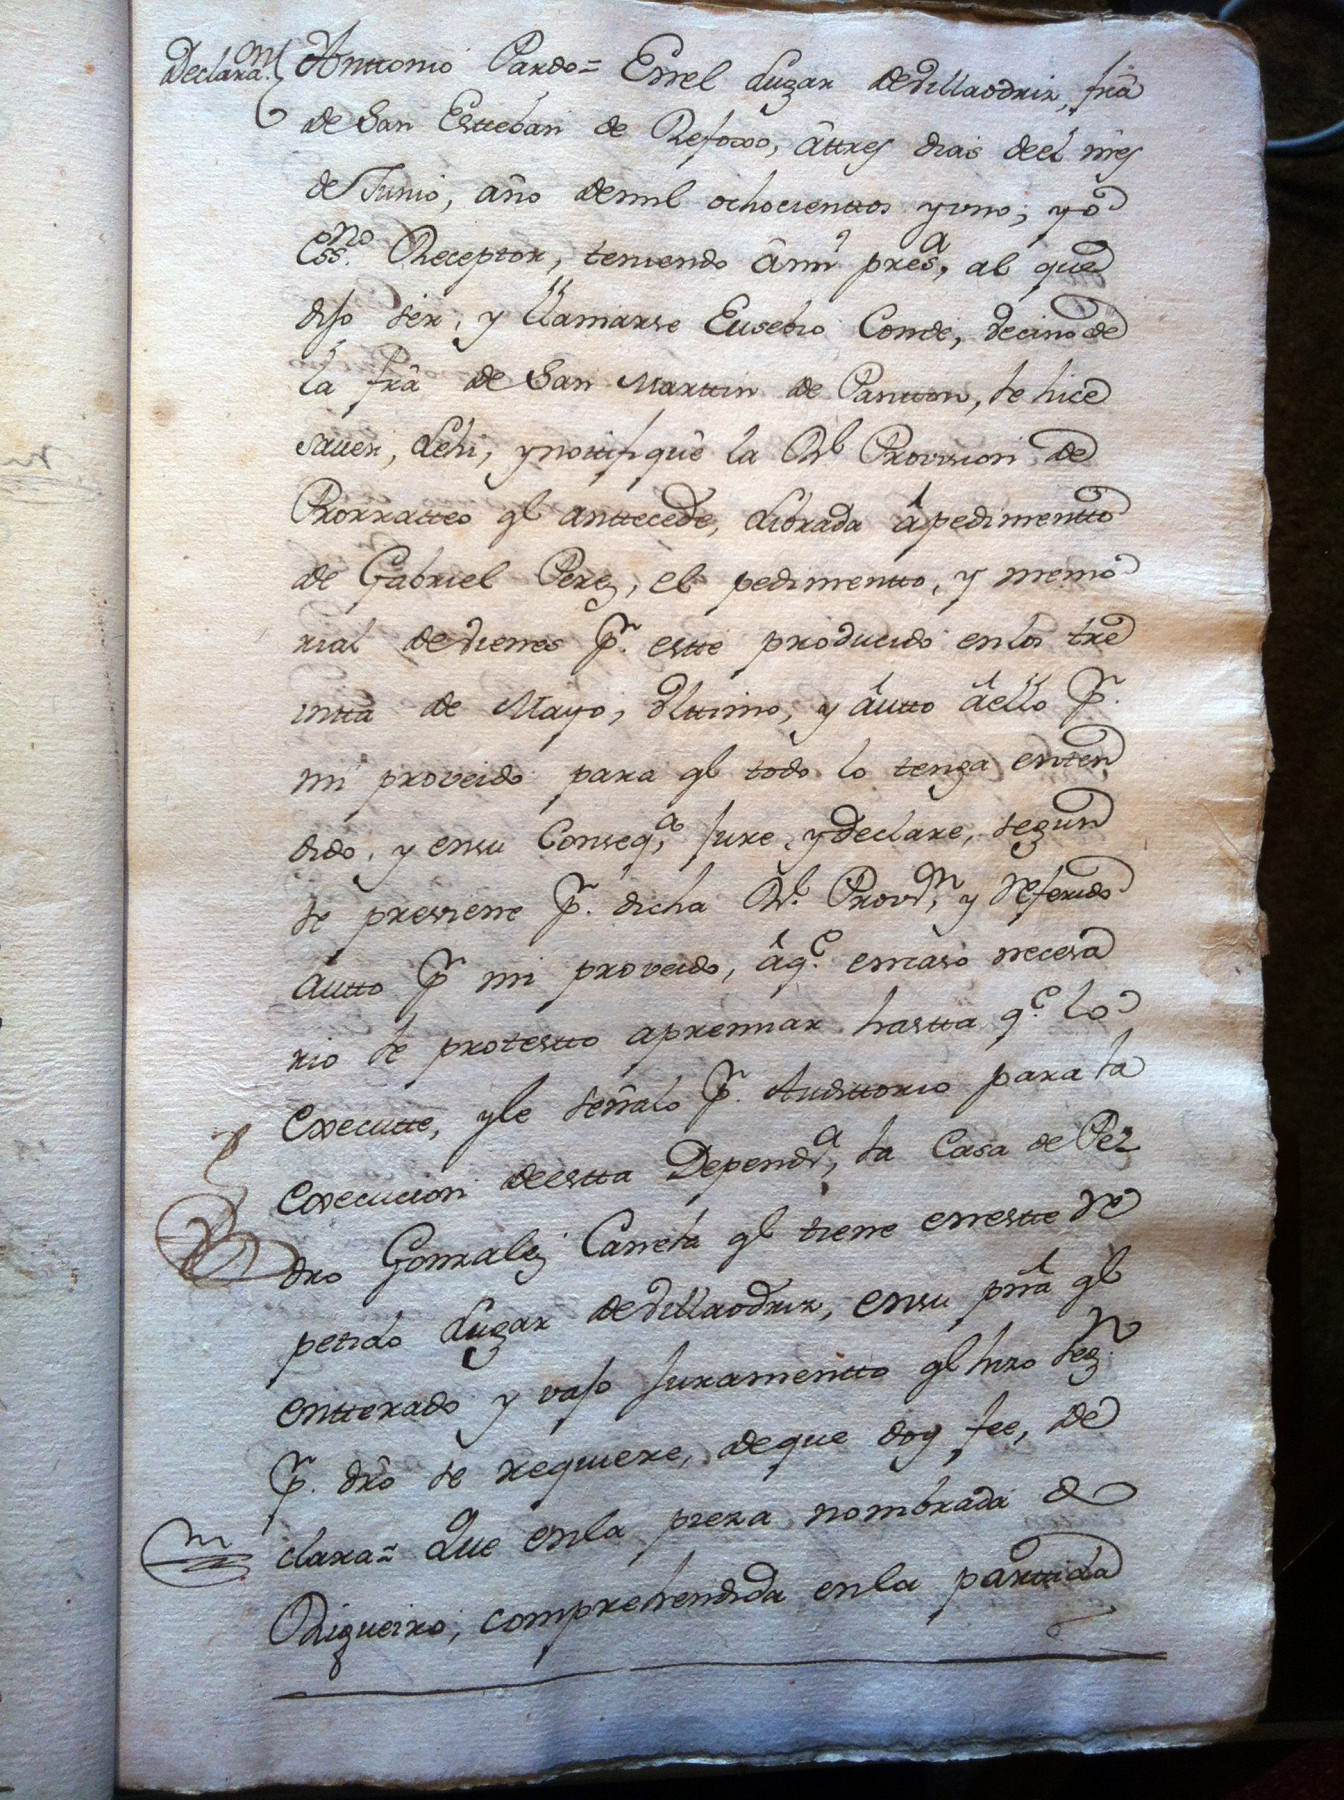 Declaraon Anttonio Pardo= Enel Lugar deVillaodriz, frã
de San Estteban de Refoxo, âttres dias deel mês
de Junio, año demil ochocienttos yuno; yo
Essno. Receptor, teniendo âmi presa, al que
dijo ser, y llamarse Eusebio Conde, vecino de
la frã de San Marttin de Pantton, le hice
saver, Lehi, ynotifiquè la Rl Provision de
Prorratteo ql anttecede, Librada â pedimentto
de Gabriel Perez, el pedimentto, y memo
rial de vienes pr. estte producido enlos tre
intta de Mayo, Ulttimo, y âutto âello pr.
mi proveido para ql todo lo tenga enten
dido, y ensu Conseqa, Jure, y declare, segun
se previene pr. dicha Rl. Provon, y referido
autto pr mi proveido, âqe. encaso necesa
rio le protestto apremiar hastta qe. lo
Executte, yle señalo pr. Audittorio para la
Execucion deestta Dependa, la Casa de Pe
dro Gonzalez Carreta ql tiene enestte re
petido Lugar de Villaodriz, ensu pñã ql
entterado y vajo Juramentto ql hizo segn.
pr. dro se requiere, deque doy fee, de
clara= Que enla pieza nombrada d
Rigueiro, comprehendida enla parttida